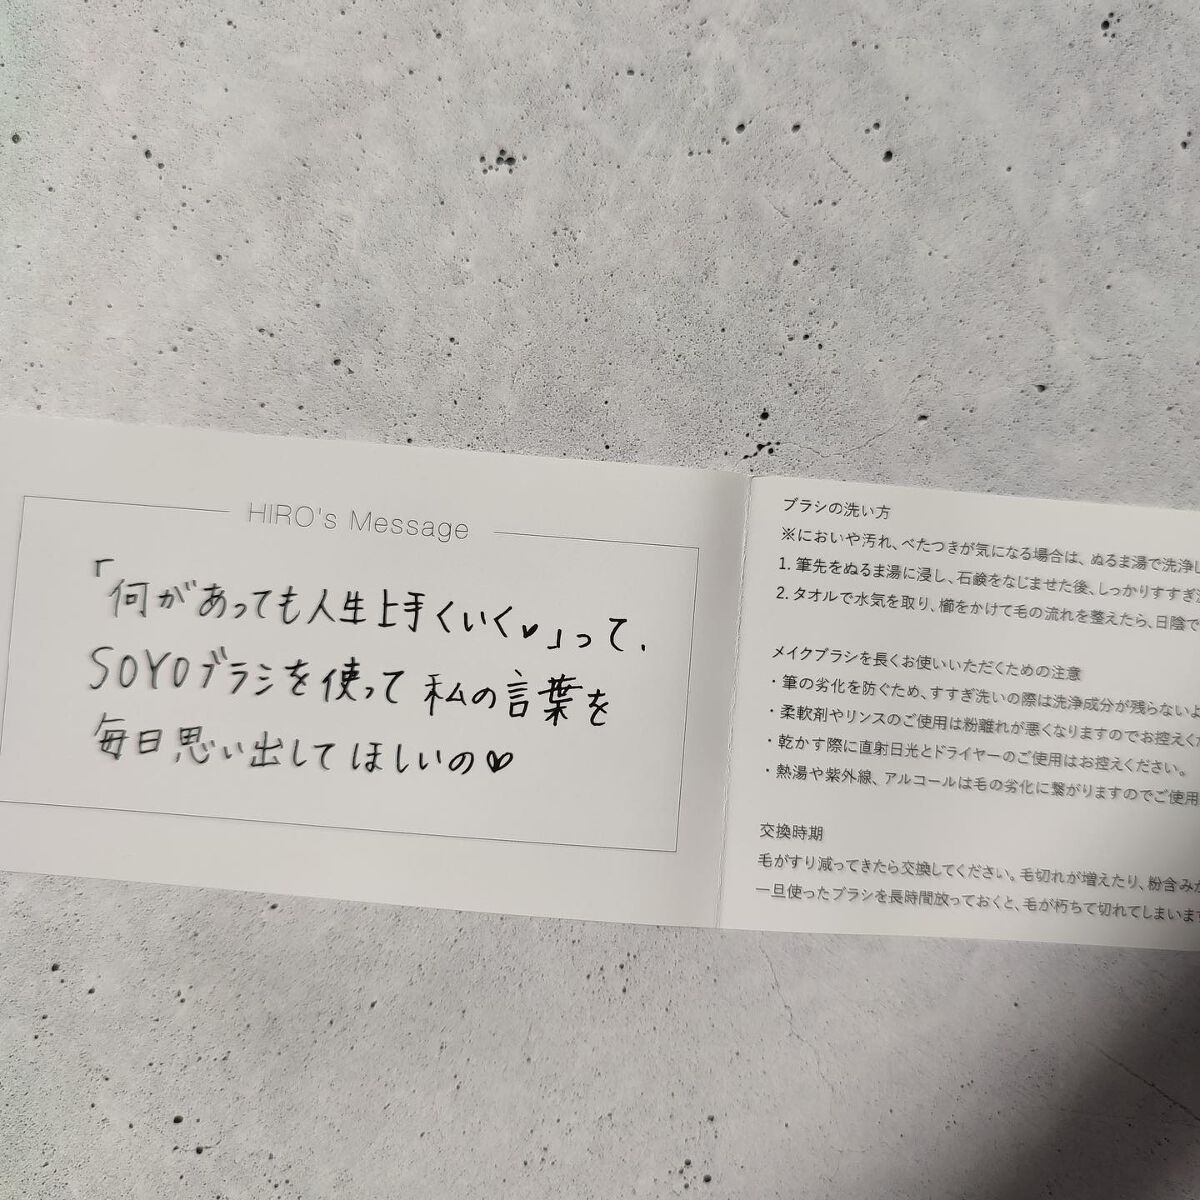 HIRO's Message
「何があっても人生上手くいく♥」って、
SOYOブラシを使って私の言葉を
毎日思い出してほしいの♡
ブラシの洗い方
※においや汚れ、べたつきが気になる場合は、ぬるま湯で洗浄し
1. 筆先をぬるま湯に浸し、石鹸をなじませた後、しっかりすすぎ
2. タオルで水気を取り、櫛をかけて毛の流れを整えたら、日陰で
メイクブラシを長くお使いいただくための注意
・筆の劣化を防ぐため、すすぎ洗いの際は洗浄成分が残らないよ
・柔軟剤やリンスのご使用は粉離れが悪くなりますのでお控えくだ
・乾かす際に直射日光とドライヤーのご使用はお控えください。
・熱湯や紫外線、アルコールは毛の劣化に繋がりますのでご使用
交換時期
毛がすり減ってきたら交換してください。毛切れが増えたり、粉含みが
一旦使ったブラシを長時間放っておくと、毛が朽ちて切れてしまいます